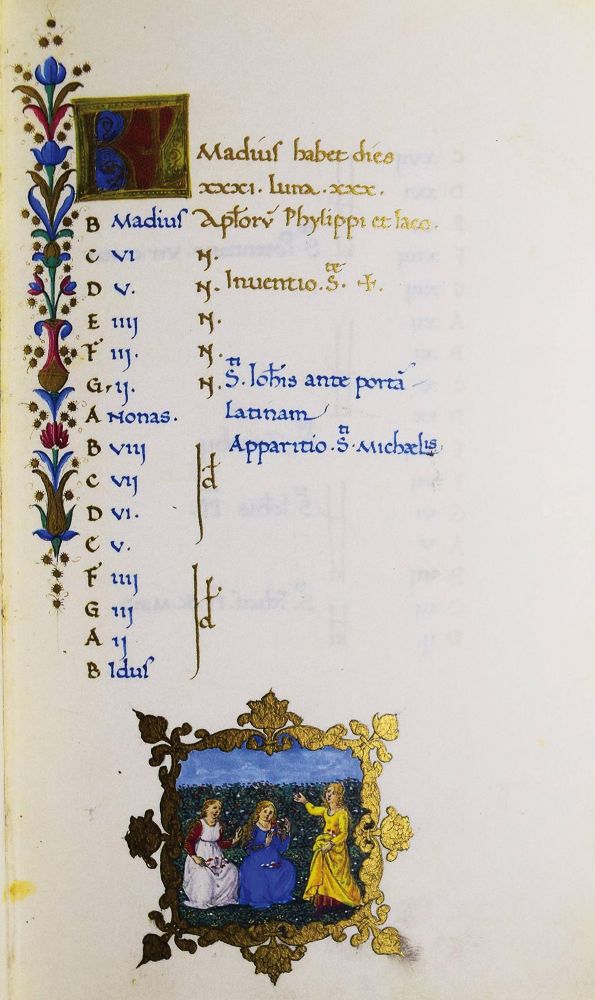 KL Madius habet dies
xxxi. luna. xxx.
B Madius Aplorũ Phylippi et Iaco.
C VI N.
D V. N. Inventio. S.te ✠.
E IIIJ N.
F IIJ. N.
G. IJ. N. S.ti Iohis ante portã
A Nonas. latinam
B VIIJ Id Apparitio. S.ti Michaelis
C VIJ
D VI.
C V.
F IIIJ Id
G IIJ
A IJ
B Idus